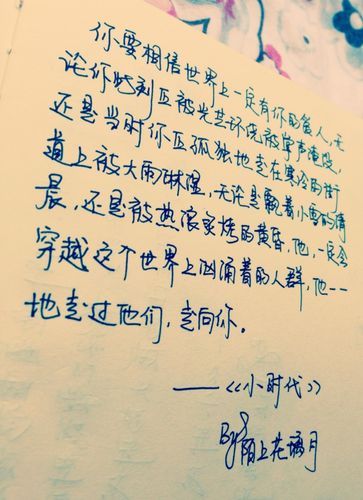 你要相信世界上一定有你的爱人,无
论你此刻正被光芒环绕被掌声淹没,
还是当时你正孤独地走在寒冷的街
道上被大雨淋湿,无论是飘着小雪的清
晨,还是被热浪炙烤的黄昏,他一定会
穿越这个世界上汹涌着的人群,他一一
地走过他们,走向你。
——《小时代》
By
陌上花璃月